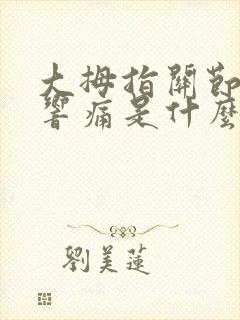 大拇指關節
響痛是什麼
劉美蓮